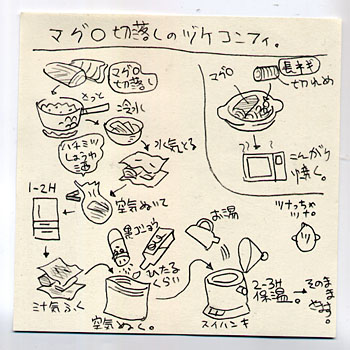 マグロ切落しのヅケコンフィ。
マグロ
切落し
さっと
冷水
ハチミツ
しょうゆ
酒
水気とる
空気ぬいて
1-2H
汁気ふく
黒コショウ
ひたる
くらい
空気ぬく。
お湯
スイハンキ
2-3H
保温。
そのまま
冷やす。
マグロ
長ネギ
切れめ
こんがり
焼く。
ツナっちゃ
ツナ。